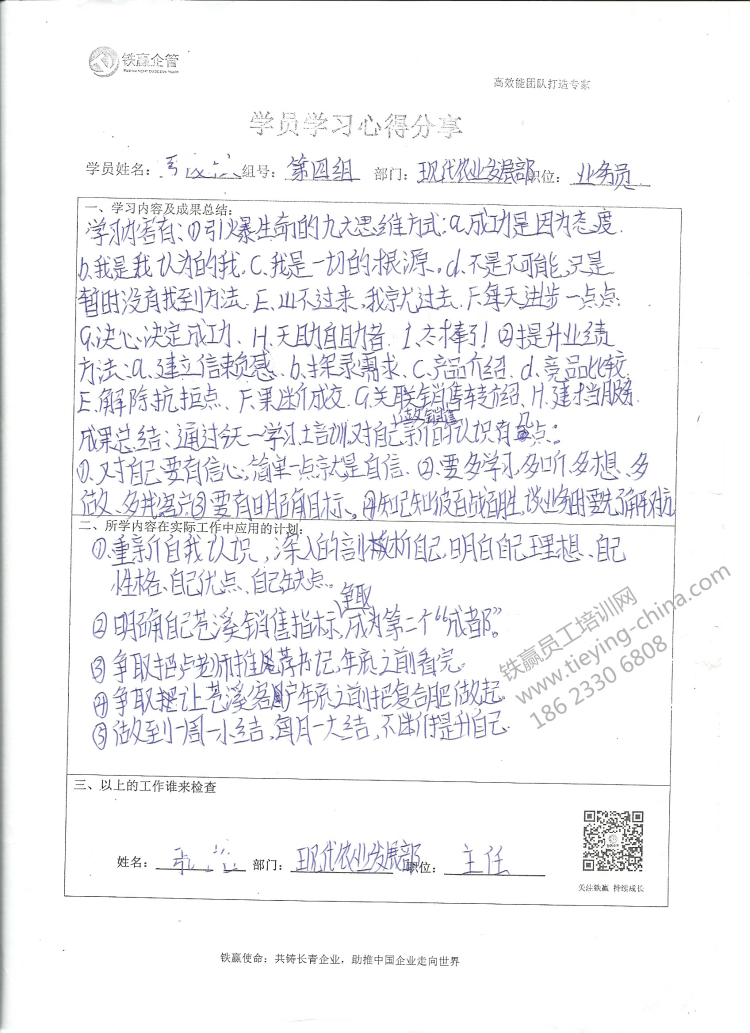 铁赢企管
高效能团队打造专家
学员学习心得分享
学员姓名： 组号：第四组 部门：现代农业发展部 职位：业务员
一、学习内容及成果总结：
学习内容有：①引爆生命的九大思维方式：a.成功是因为态度.
b.我是我认为的我. C.我是一切的根源。d.不是不可能,只是
暂时没有找到方法. E.山不过来,我就过去. F.每天进步一点点.
G.决心决定成功. H.天助自助者. I.太棒了! ②提升业绩
方法：a.建立信赖感. b.探录需求. C.产品介绍. d.竞品比较.
E.解除抗拒点. F.果断成交. G.关联销售转介绍. H.建档服务.
成果总结：通过今天一学习土培训,对自己做销售新的认识有几点：
①.对自己要有信心,简单一点就是自信. ②.要多学习、多听、多想、多
做、多找客户③要有明确目标。④知己知彼百战百胜,谈业务时要先了解对方
二、所学内容在实际工作中应用的计划：
①.重新自我认识，深入的剖析自己,明白自己理想、自己
性格、自己优点、自己缺点。
②明确自己苍溪销售指标,争取成为第二个“成都”。
③争取把卢老师推荐书记,年底之前看完.
④争取让苍溪客户年底之前把复合肥做起.
⑤做到一周一小结,每月一大结,不断提升自己.
铁赢员工培训网
www.tieying-china.com
186 2330 6808
三、以上的工作谁来检查
姓名： 部门：现代农业发展部 职位：主任
关注铁赢 持续成长
铁赢使命：共铸长青企业，助推中国企业走向世界